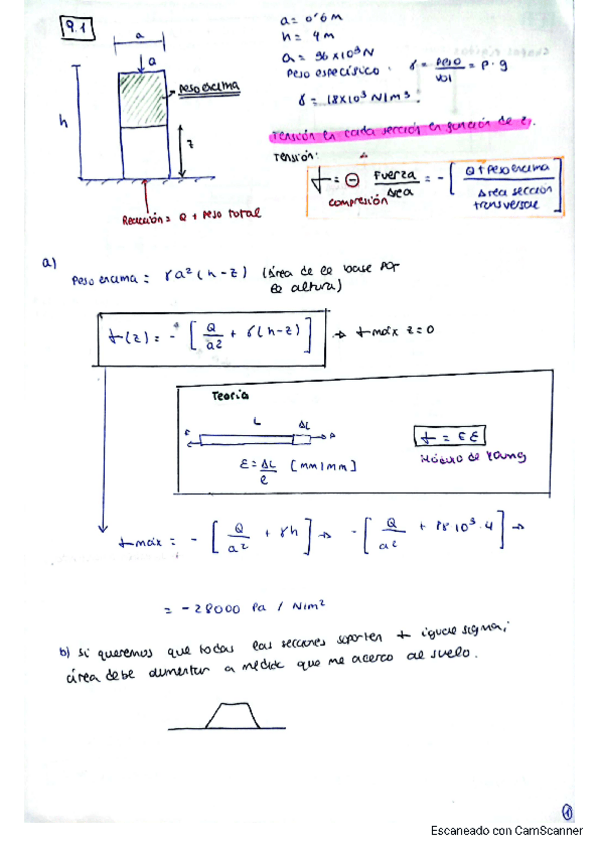 9.1
a = 0'6 m
h = 4 m
Q = 36 x 10³ N
Peso específico: γ = peso / vol = ρ · g
γ = 18 x 10³ N/m³
a
Q
peso encima
h
z
Reacción = Q + peso total
Tensión en cada sección en función de z.
Tensión:
σ = ⊖ Fuerza / Área = - [ Q + peso encima / Área sección transversal ]
compresión
a)
Peso encima = γ a² (h - z) (área de la base por la altura)
σ(z) = - [ Q / a² + γ(h - z) ] → σ max z = 0
Teoría
L
ΔL
ε = ΔL / l [mm/mm]
σ = E ε
Módulo de Young
σ max = - [ Q / a² + γh ] → - [ Q / a² + 18·10³ · 4 ] →
= - 28000 Pa / N/m²
b) Si queremos que todas las secciones soporten + igual sigma;
área debe aumentar a medida que me acerco al suelo.
1
Escaneado con CamScanner